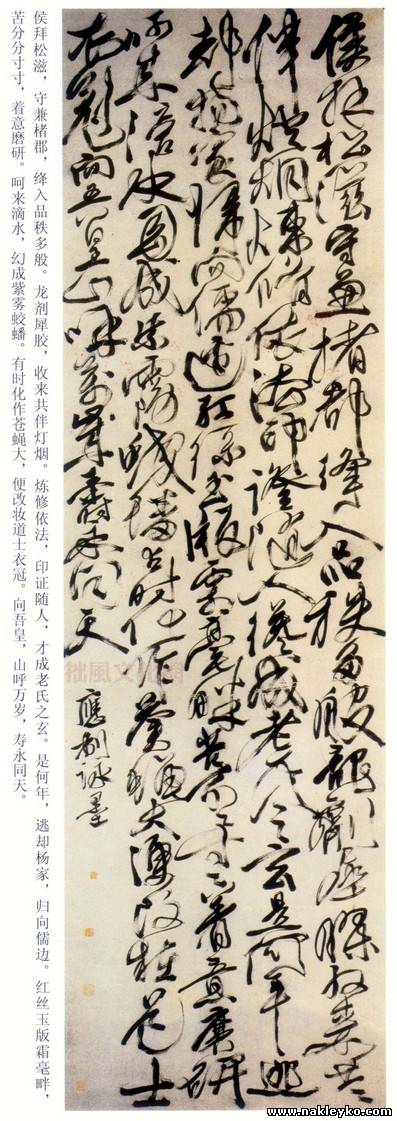 侯拜松滋守兼楮郡絳入品秩多般龍劑犀膠收來共
伴燈烟煉修依法印證隨人才成老氏之玄是何年逃
却楊家歸向儒邊紅絲玉版霜毫畔苦分分寸寸着意磨研
呵來滴水幻成紫霧蛟蟠有時化作蒼蠅大便改粧道士
衣冠向吾皇山呼萬歲壽永同天
應制咏墨
侯拜松滋，守兼楮郡，绛入品秩多般。龙剑犀胶，收来共伴灯烟。炼修依法，印证随人，才成老氏之玄。是何年，逃却杨家，归向儒边。红丝玉版霜毫畔，
苦分分寸寸，着意磨研。呵来滴水，幻成紫雾蛟蟠。有时化作苍蝇大，便改妆道士衣冠。向吾皇，山呼万岁，寿永同天。
www.nakleyko.com